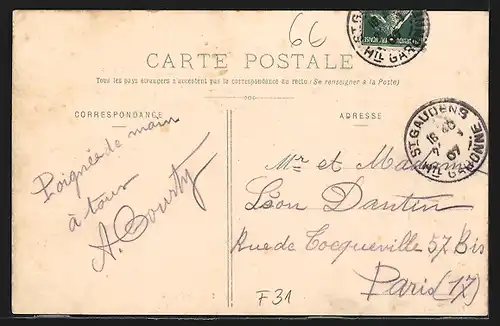 66
CARTE POSTALE
Tous les pays étrangers n'acceptent pas la correspondance au recto (Se renseigner à la Poste)
CORRESPONDANCE
ADRESSE
Poignée de main
à tous
A. Courty
Mr et Madame
Léon Dantin
Rue de Tocqueville 57 Bis
Paris (17)
ST GAUDENS
16 20
07
HTE GARONNE
F31